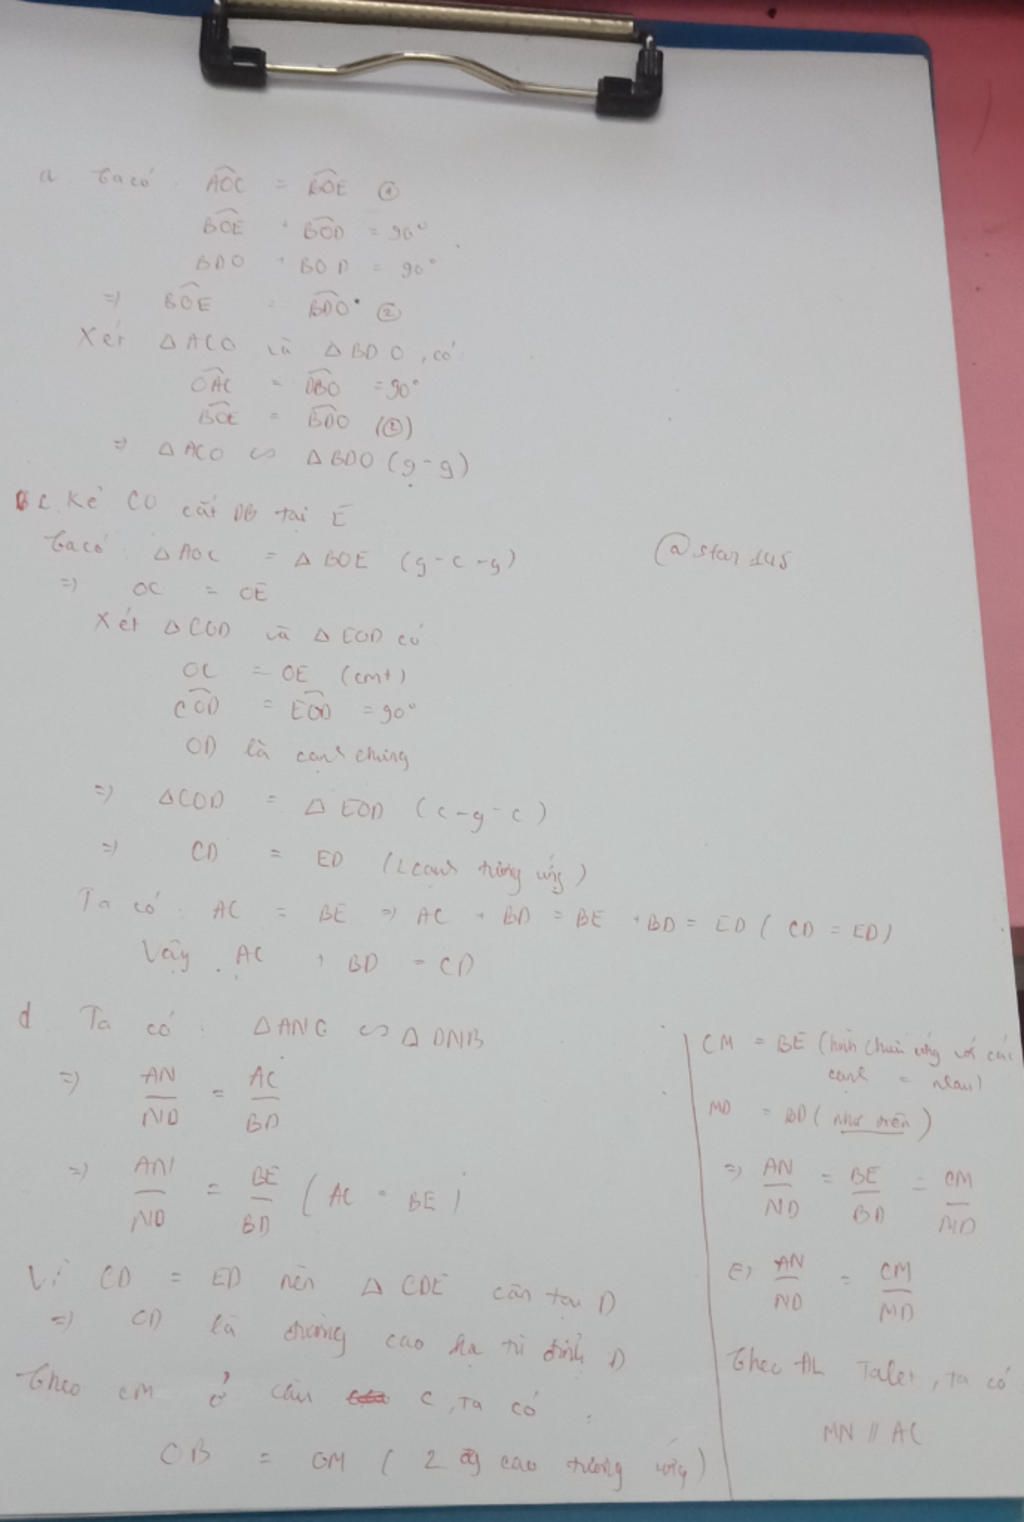 a Ta có: AOC = BOE ①
BOE + BOD = 90°
BDO + BOD = 90°
=> BOE = BDO ②
Xét △ACO và △BDO, có
OAC = DBO = 90°
BOE = BDO (②)
=> △ACO ∽ △BDO (g-g)
c. Kẻ CO cắt DB tại E
Ta có: △AOC = △BOE (g-c-g)
@star145
=> OC = OE
Xét △COD và △EOD có
OC = OE (cmt)
COD = EOD = 90°
OD là cạnh chung
=> △COD = △EOD (c-g-c)
=> CD = ED (2 cạnh tương ứng)
Ta có: AC = BE => AC + BD = BE + BD = ED (CD = ED)
Vậy AC + BD = CD
d Ta có: △ANC ∽ △DNB
=> AN/ND = AC/BD
=> AN/ND = BE/BD (AC = BE)
Vì CD = ED nên △CDE cân tại D
=> OD là đường cao hạ từ đỉnh D
Theo CM ở câu c, ta có:
OB = OM (2 đg cao tương ứng)
CM = BE (hình chiếu ứng với các
cạnh = nhau)
MD = BD (như trên)
=> AN/ND = BE/BD = CM/MD
<=> AN/ND = CM/MD
Theo ĐL Talet, ta có
MN // AC